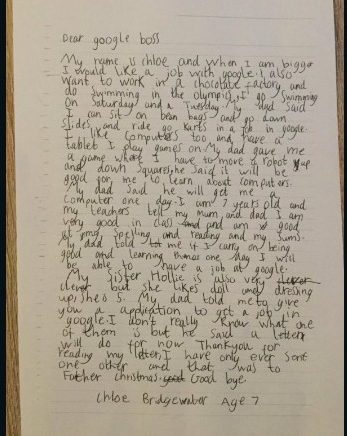 Dear google boss
My name is Chloe and when I am bigger
I would like a job with google. I also
want to work in a chocolate factory and
do swimming in the Olympics. I go swimming
on Saturday and a Tuesday. My dad said
I can sit on bean bags and go down
slides and ride go karts in a job in google.
I like computers too and have a
tablet I play games on. My dad gave me
a game where I have to move a robot up
and down squares, he said it will be
good for me to learn about computers.
My dad said he will get me a
computer one day. I am 7 years old and
my teachers tell my mum and dad I am
very good in class and am good
at my spelling and reading and my sums.
My dad told me if I carry on being
good and learning then one day I will
be able to have a job at google.
My sister Hollie is also very
clever but she likes doll and dressing
up, she is 5. My dad told me to give
you a application to get a job in
google. I don't really know what one
of them is but he said a letter
will do for now. Thank you for
reading my letter, I have only ever sent
one other and that was to
Father christmas. Good bye.
Chloe Bridgewater Age 7